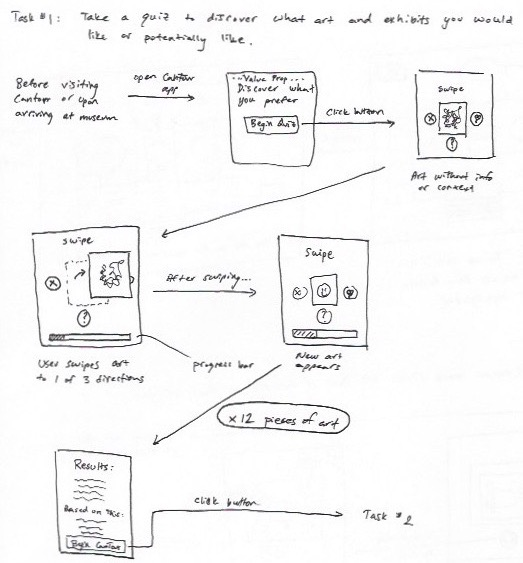 Task #1: Take a quiz to discover what art and exhibits you would
like or potentially like.
Before visiting
Cantopr or upon
arriving at museum
open Cantour
app
...Value Prop...
Discover what
you prefer
Begin Quiz
Click button
Swipe
?
Art without info
or context
Swipe
?
User swipes art
to 1 of 3 directions
progress bar
After swiping...
Swipe
?
New art
appears
x12 pieces of art
Results:
Based on this:
Begin Cantour
click button
Task #2